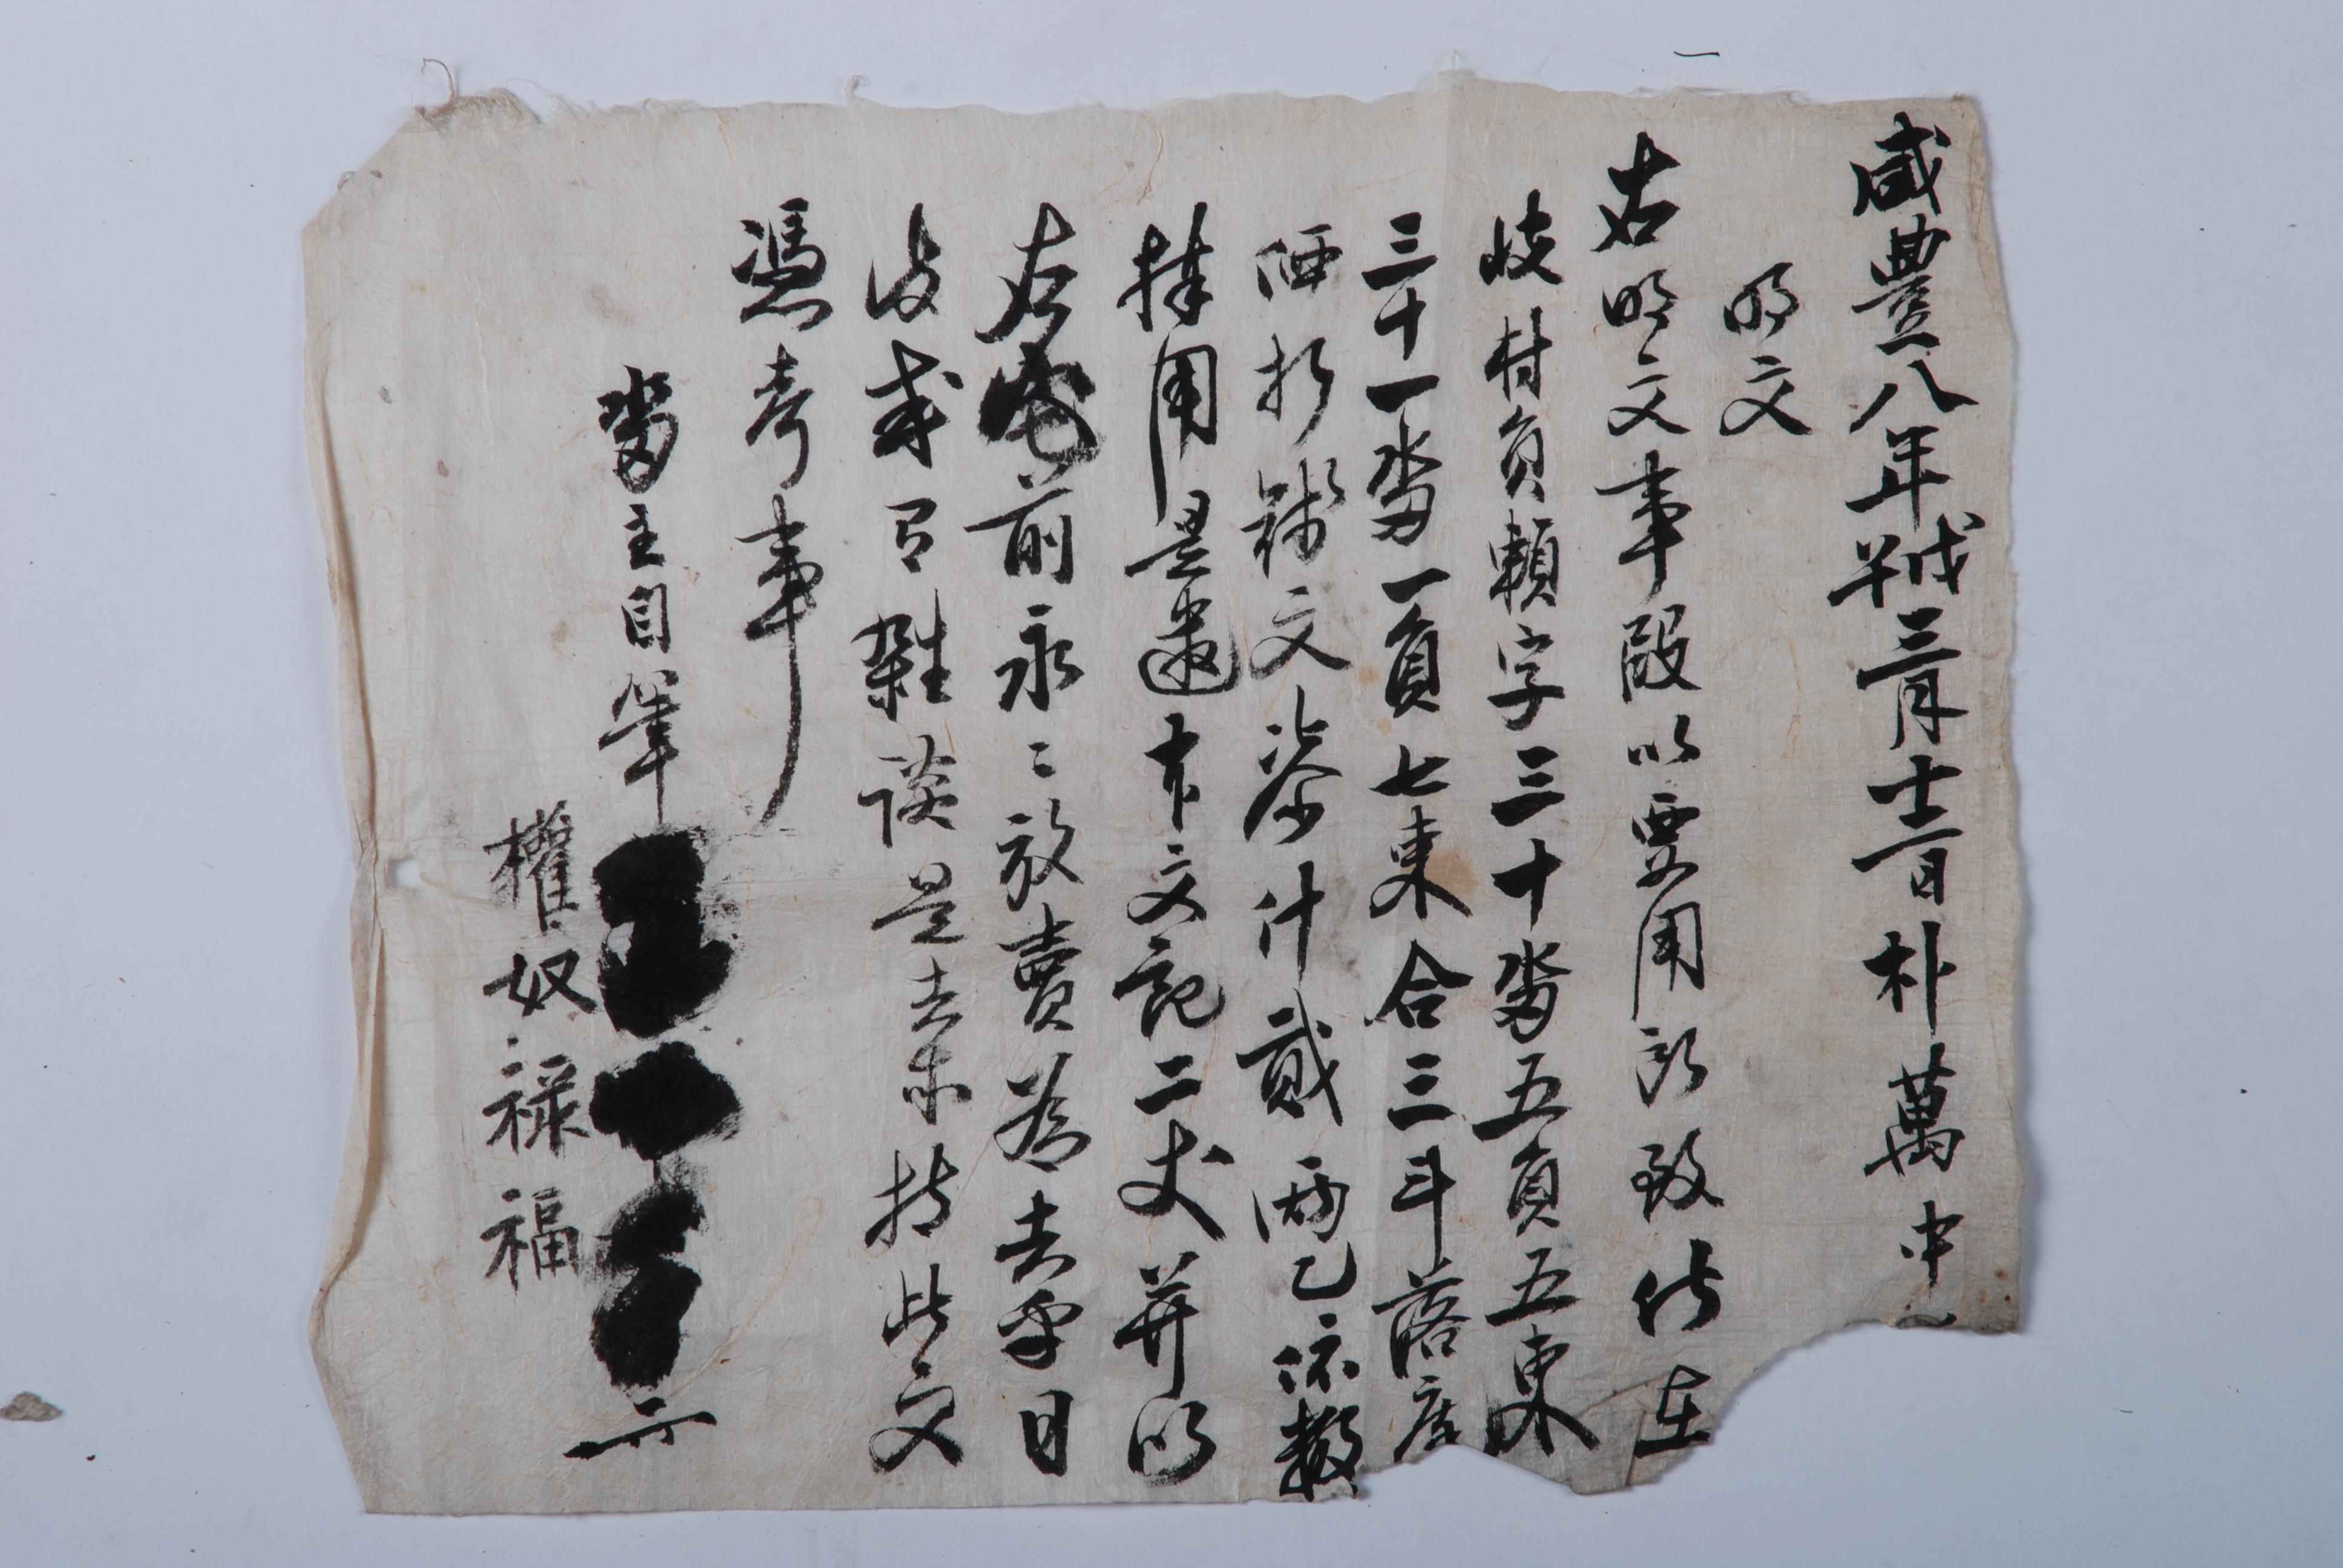 咸豊八年戊午三月十二日朴萬中
明文
右明文事段以要用所致伏在
岐村員賴字三十畓五負五束
三十一畓一負七束合三斗落庫
価折錢文柒什貳兩乙依數
捧用是遣本文記二丈幷以
右宅前永〻放賣爲去乎日
後或有雜談是去等持此文
憑考事
畓主自筆
權奴祿福